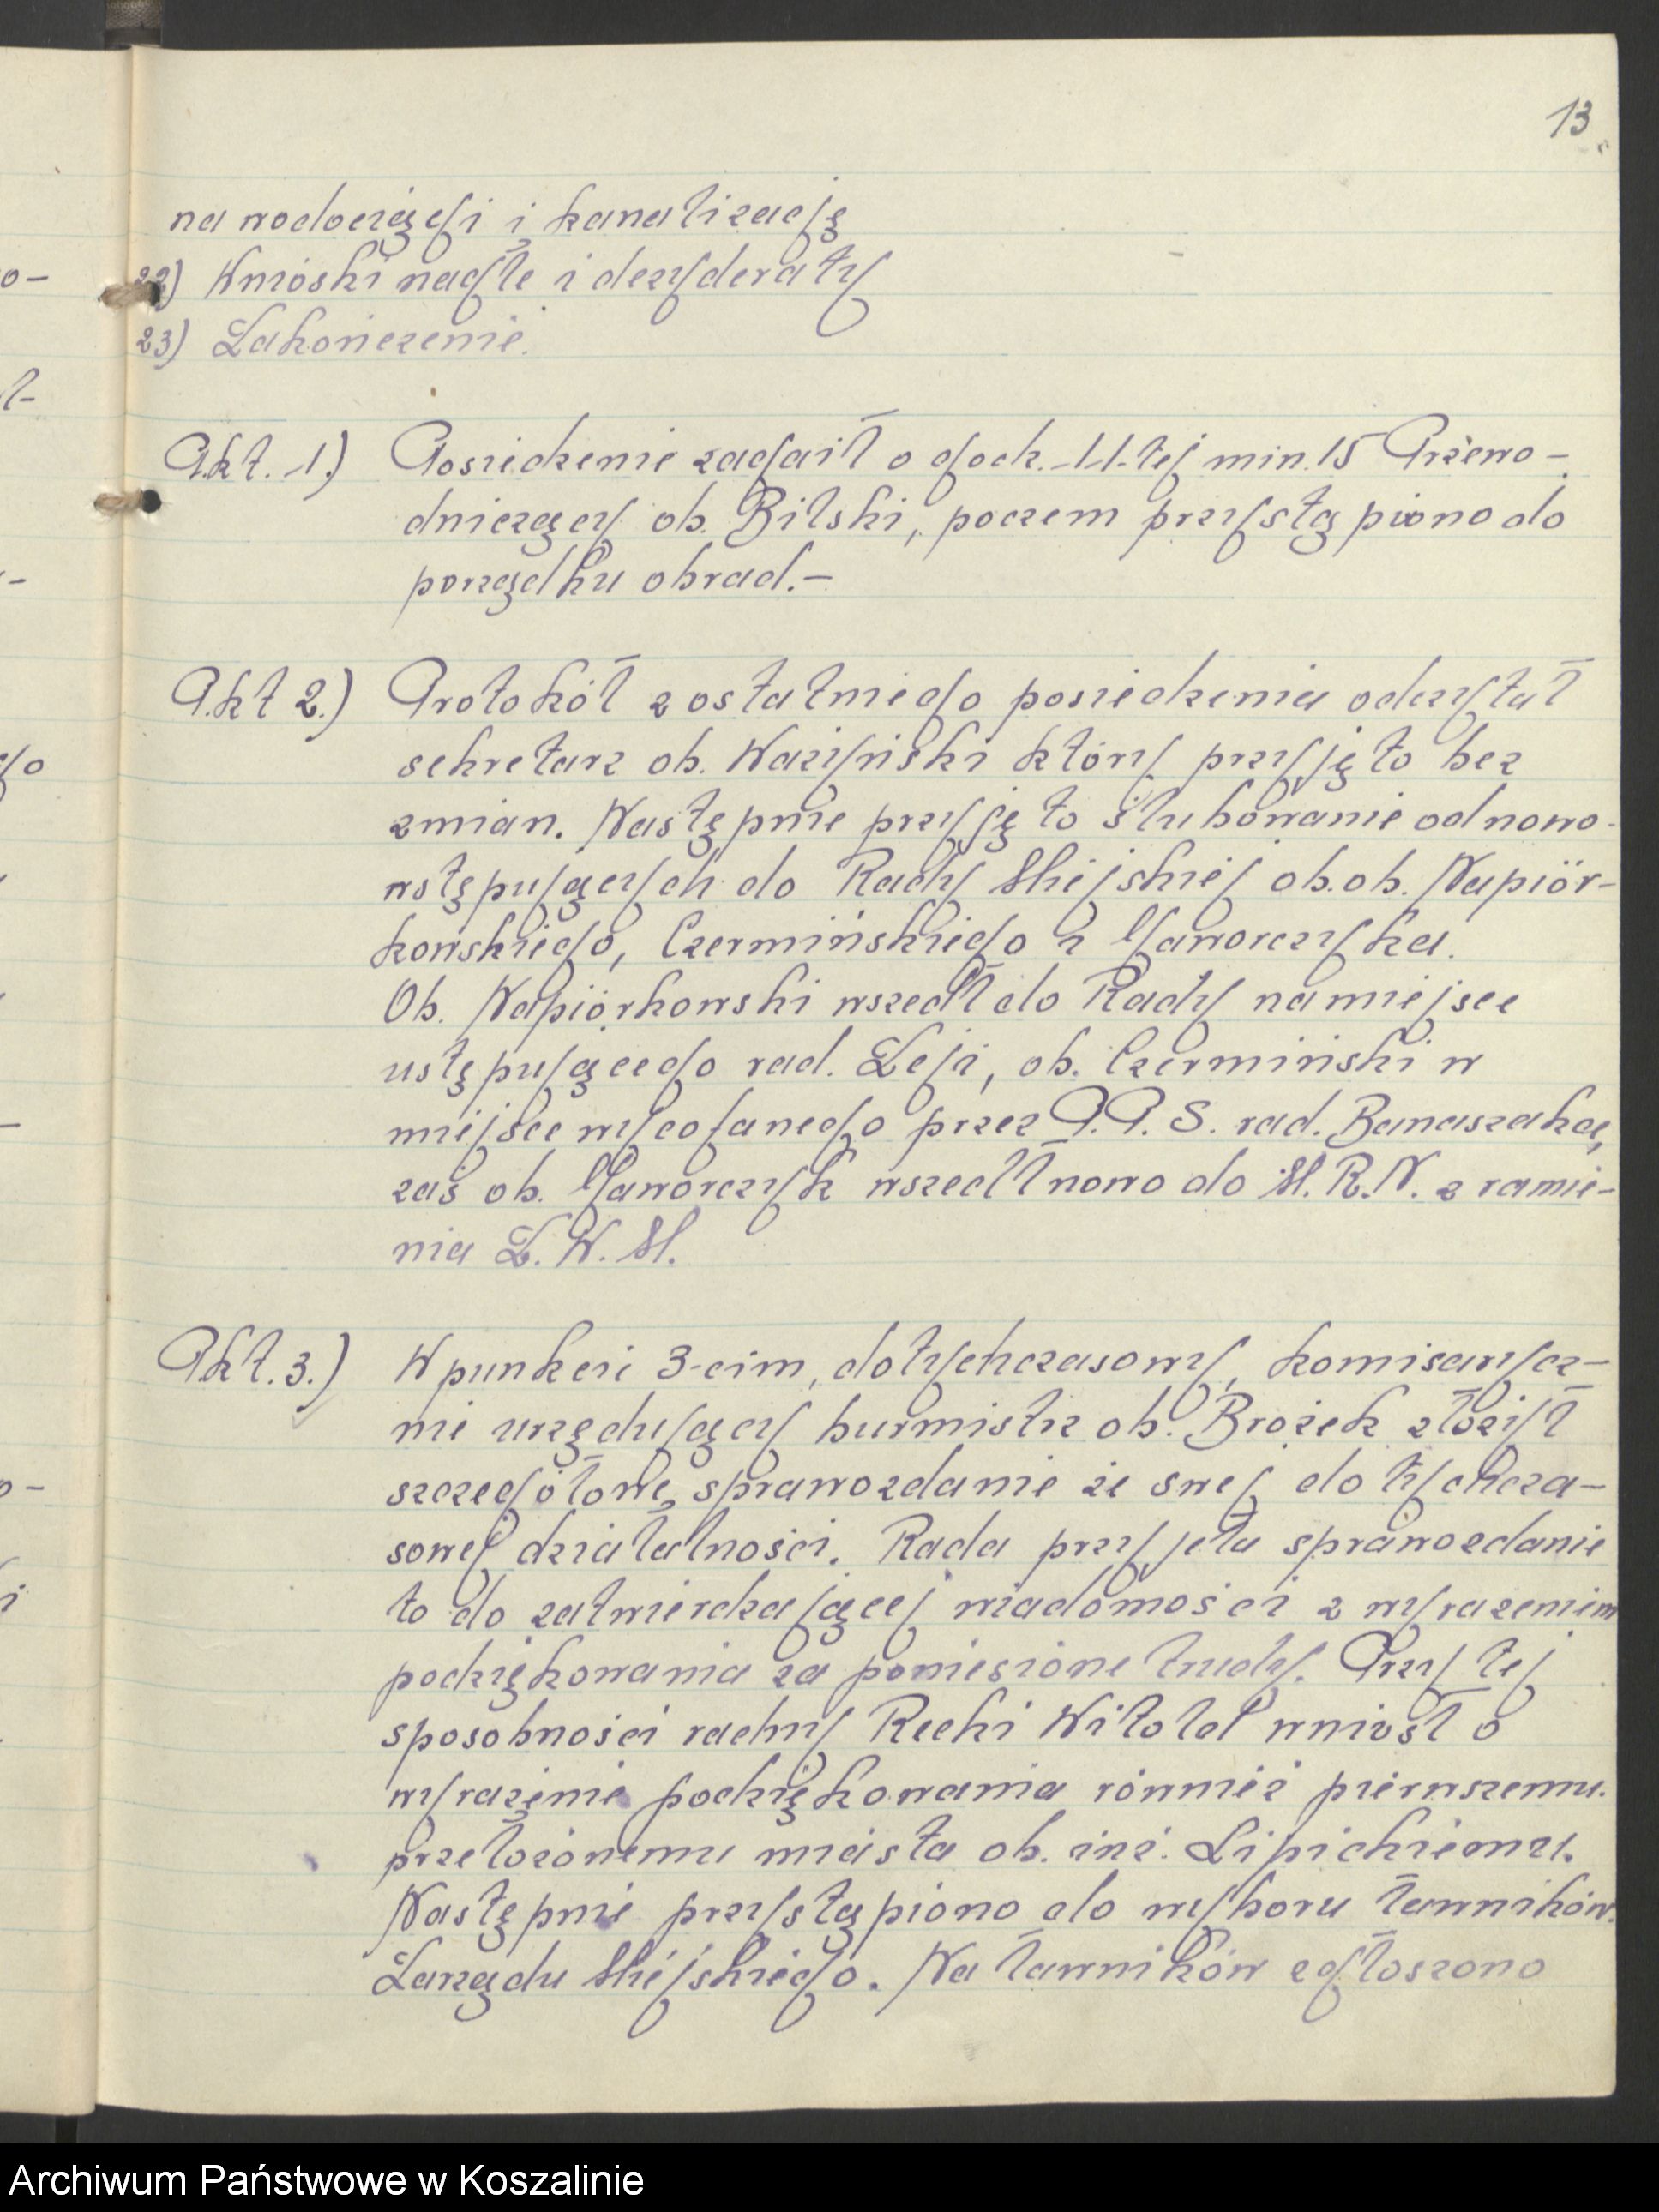 13
na wodociągi i kanalizację
22) Wnioski nagłe i dezyderaty
23) Zakończenie.
Pkt. 1.) Posiedzenie zagaił o godz. 11-tej min. 15 Przewo-
dniczący ob. Bilski, poczem przystąpiono do
porządku obrad.-
Pkt 2.) Protokół z ostatniego posiedzenia odczytał
sekretarz ob. Ważyński który przyjęto bez
zmian. Następnie przyjęto ślubowanie od nowo-
wstępujących do Rady Miejskiej ob.ob. Napiór-
kowskiego, Czermińskiego i Jaworczyka.
Ob. Napiórkowski wszedł do Rady na miejsce
ustępującego rad. Zeji, ob. Czermiński w
miejsce wycofanego przez P.P.S. rad. Banaszaka,
zaś ob. Jaworczyk wszedł nowo do M.R.N. z ramie-
nia Z.W.M.
Pkt. 3.) W punkcie 3-cim, dotychczasowy, komisarycz-
nie urzędujący burmistrz ob. Brożek złożył
szczegółowe sprawozdanie ze swej dotychcza-
sowej działalności. Rada przyjęła sprawozdanie
to do zatwierdzającej wiadomości z wyrażeniem
podziękowania za poniesione trudy. Przy tej
sposobności radny Recki Witold wniósł o
wyrażenie podziękowania również pierwszemu
przełożonemu miasta ob. inż. Lipickiemu.
Następnie przystąpiono do wyboru ławników
Zarządu Miejskiego. Na ławników zgłoszono
Archiwum Państwowe w Koszalinie